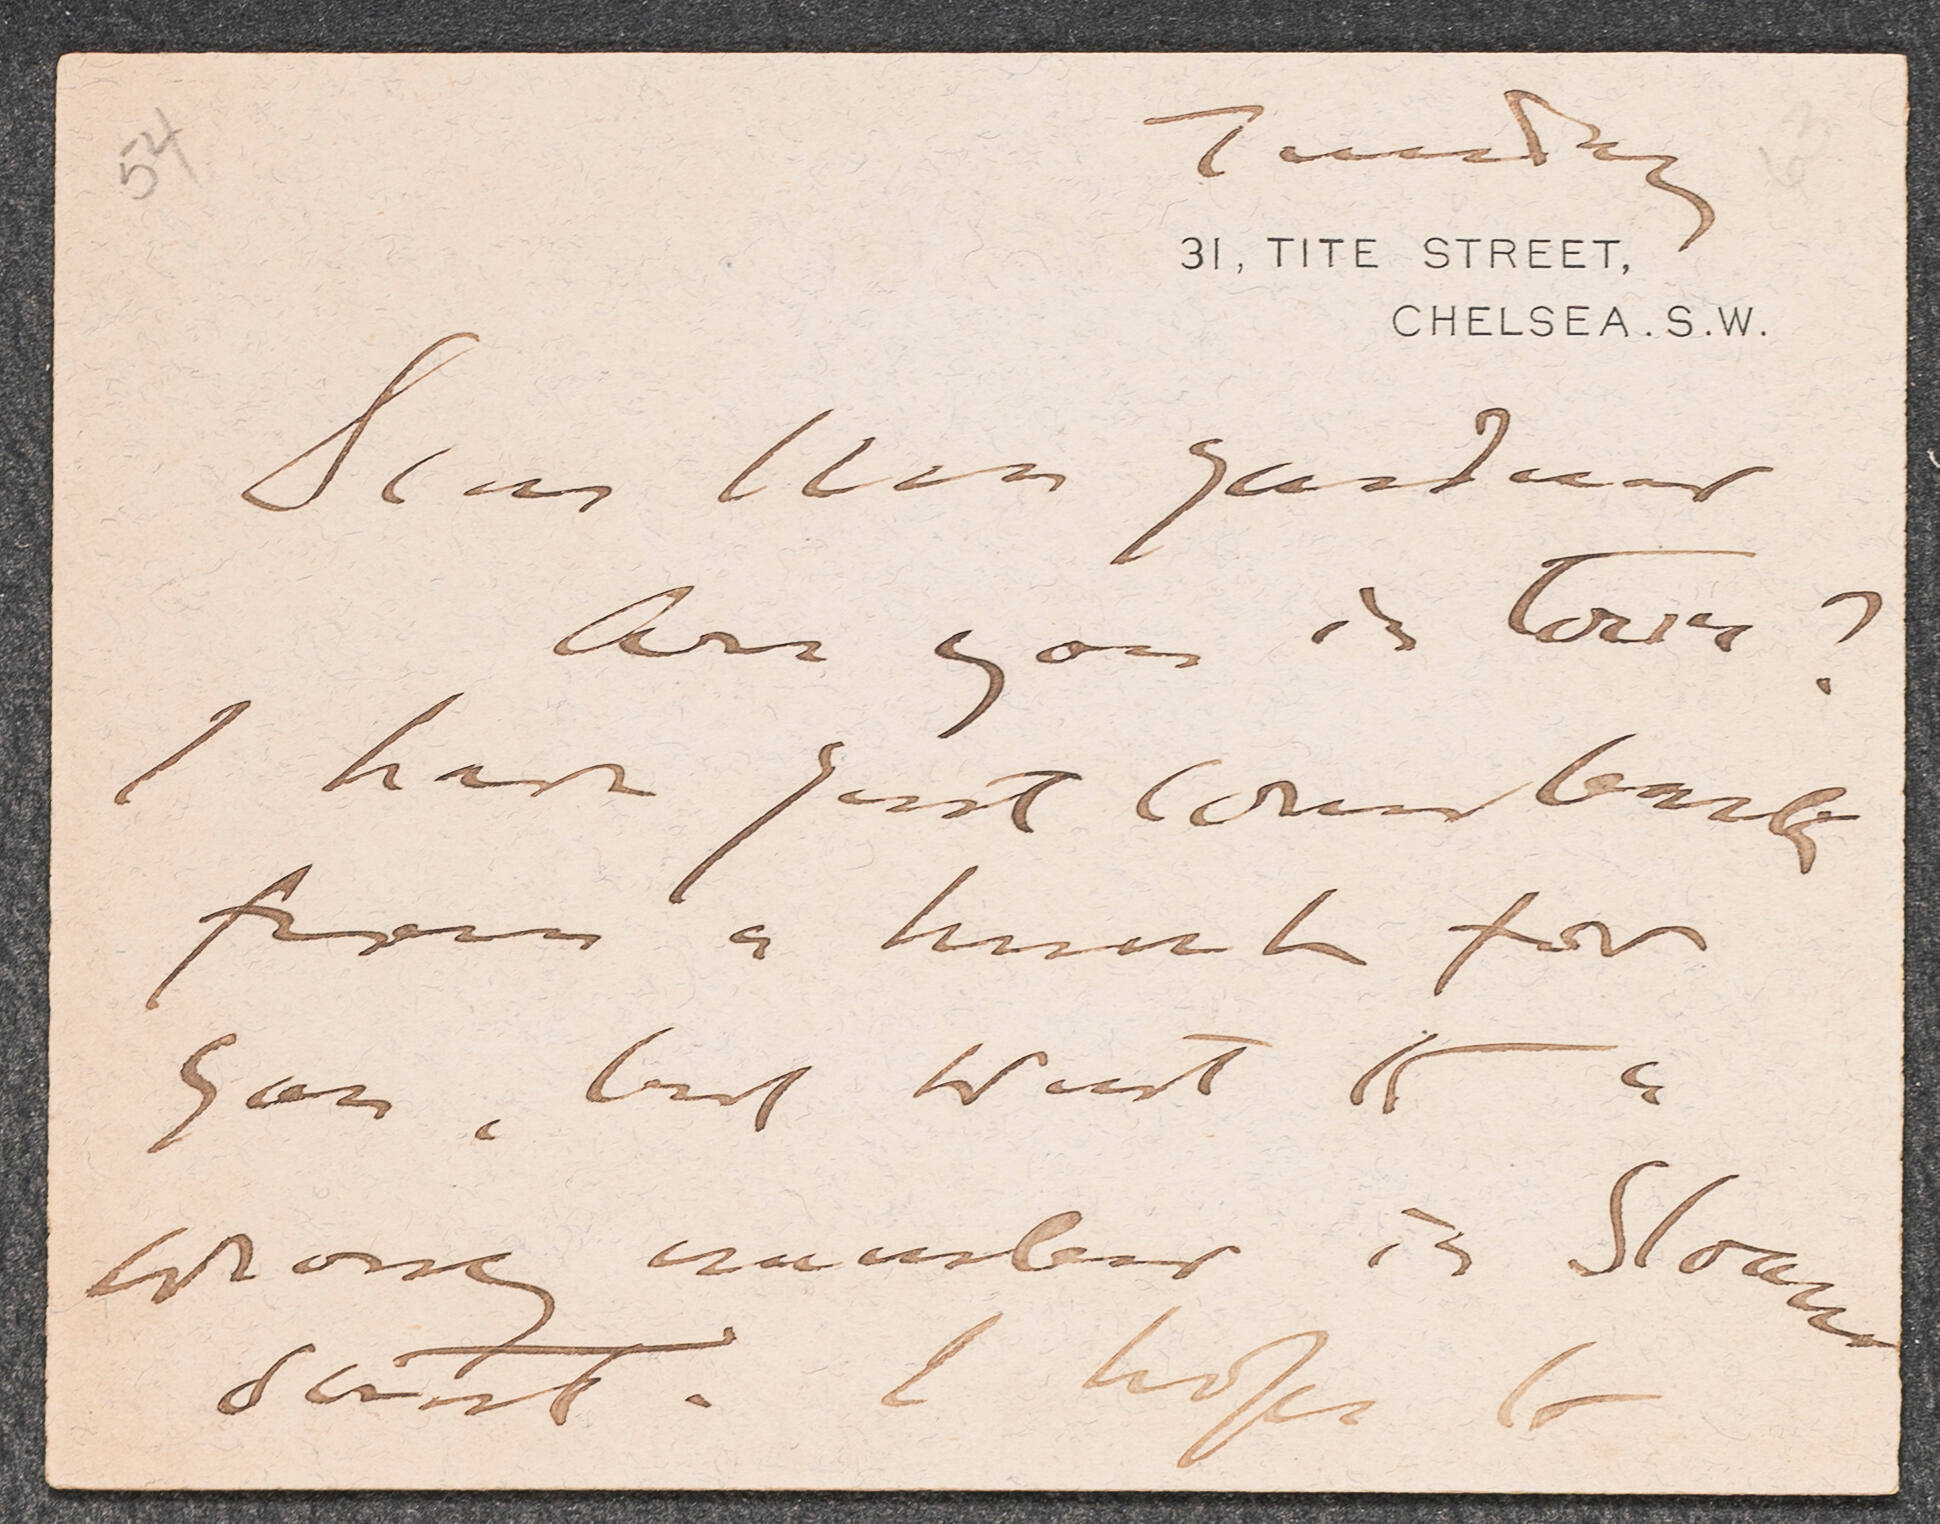 54
63
Tuesday
31, TITE STREET,
CHELSEA. S.W.
Dear Mrs Gardner
Are you in town?
I have just come back
from a hunt for
you, but went to a
wrong number in Sloane
Street. I hope to